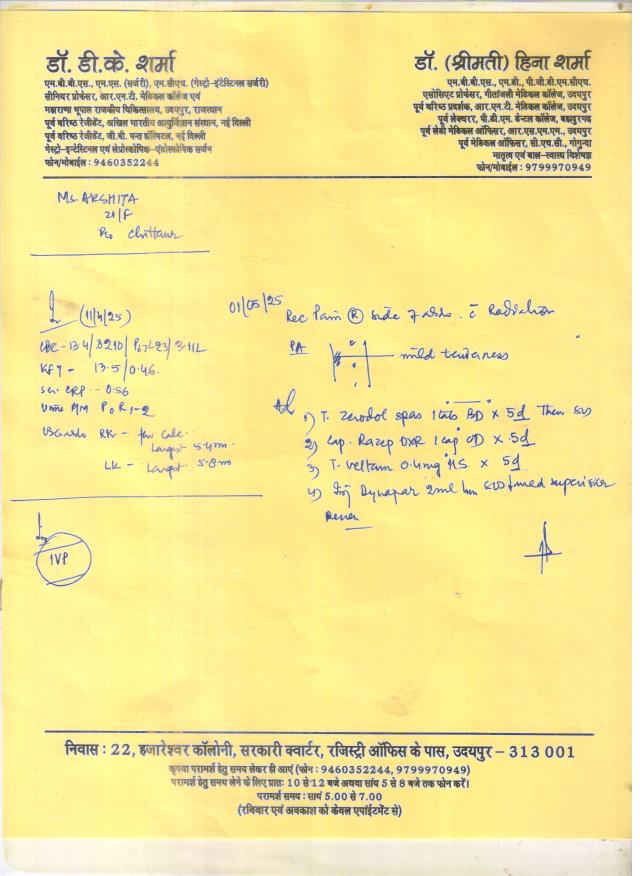 डॉ. डी.के. शर्मा
एम.बी.बी.एस., एम.एस. (सर्जरी), एम.सीएच. (गेस्ट्रो-इंटेस्टिनल सर्जरी)
सीनियर प्रोफेसर, आर.एन.टी. मेडिकल कॉलेज एवं
महाराणा भूपाल राजकीय चिकित्सालय, उदयपुर, राजस्थान
पूर्व वरिष्ठ रेजीडेंट, अखिल भारतीय आयुर्विज्ञान संस्थान, नई दिल्ली
पूर्व वरिष्ठ रेजीडेंट, जी.बी. पन्त हॉस्पिटल, नई दिल्ली
गेस्ट्रो-इन्टेस्टिनल एवं लेप्रोस्कोपिक-एंडोस्कोपिक सर्जन
फोन/मोबाईल : 9460352244
डॉ. (श्रीमती) हिना शर्मा
एम.बी.बी.एस., एम.डी., पी.जी.डी.एम.सीएच.
एसोसिएट प्रोफेसर, गीतांजली मेडिकल कॉलेज, उदयपुर
पूर्व वरिष्ठ प्रदर्शक, आर.एन.टी. मेडिकल कॉलेज, उदयपुर
पूर्व लेक्चरर, पी.डी.एम. डेन्टल कॉलेज, बहादुरगढ़
पूर्व लेडी मेडिकल ऑफिसर, आर.एस.एम.एम., उदयपुर
पूर्व मेडिकल ऑफिसर, सी.एच.सी., गोगुन्दा
मातृत्व एवं बाल-स्वास्थ्य विशेषज्ञ
फोन/मोबाईल : 9799970949
Ms. ARSHITA
21/F
R/o Chittaur
(11/4/25)
CBC - 13.4/8210/
KFT - 13.5/0.46
Ser. CRP - 0.56
Urine R/M
RK -
Largest 5.4m
LK - Largest 5.8m
IVP
01/05/25
Rec Pain (R) side of abdo. c̄ Radiation
PA
mild tenderness
Ad
1) T. Zerodol spas 1 tab BD x 5d Then SOS
2) Cap. Razep DXR 1 cap OD x 5d
3) T. Veltam 0.4mg HS x 5d
4) Inj Dynapar 2ml Im SOS med supervision
निवास : 22, हजारेश्वर कॉलोनी, सरकारी क्वार्टर, रजिस्ट्री ऑफिस के पास, उदयपुर – 313 001
कृपया परामर्श हेतु समय लेकर ही आएं (फोन : 9460352244, 9799970949)
परामर्श हेतु समय लेने के लिए प्रातः 10 से 12 बजे अथवा सांय 5 से 8 बजे तक फोन करें।
परामर्श समय : सायं 5.00 से 7.00
(रविवार एवं अवकाश को केवल एपॉईंटमेंट से)